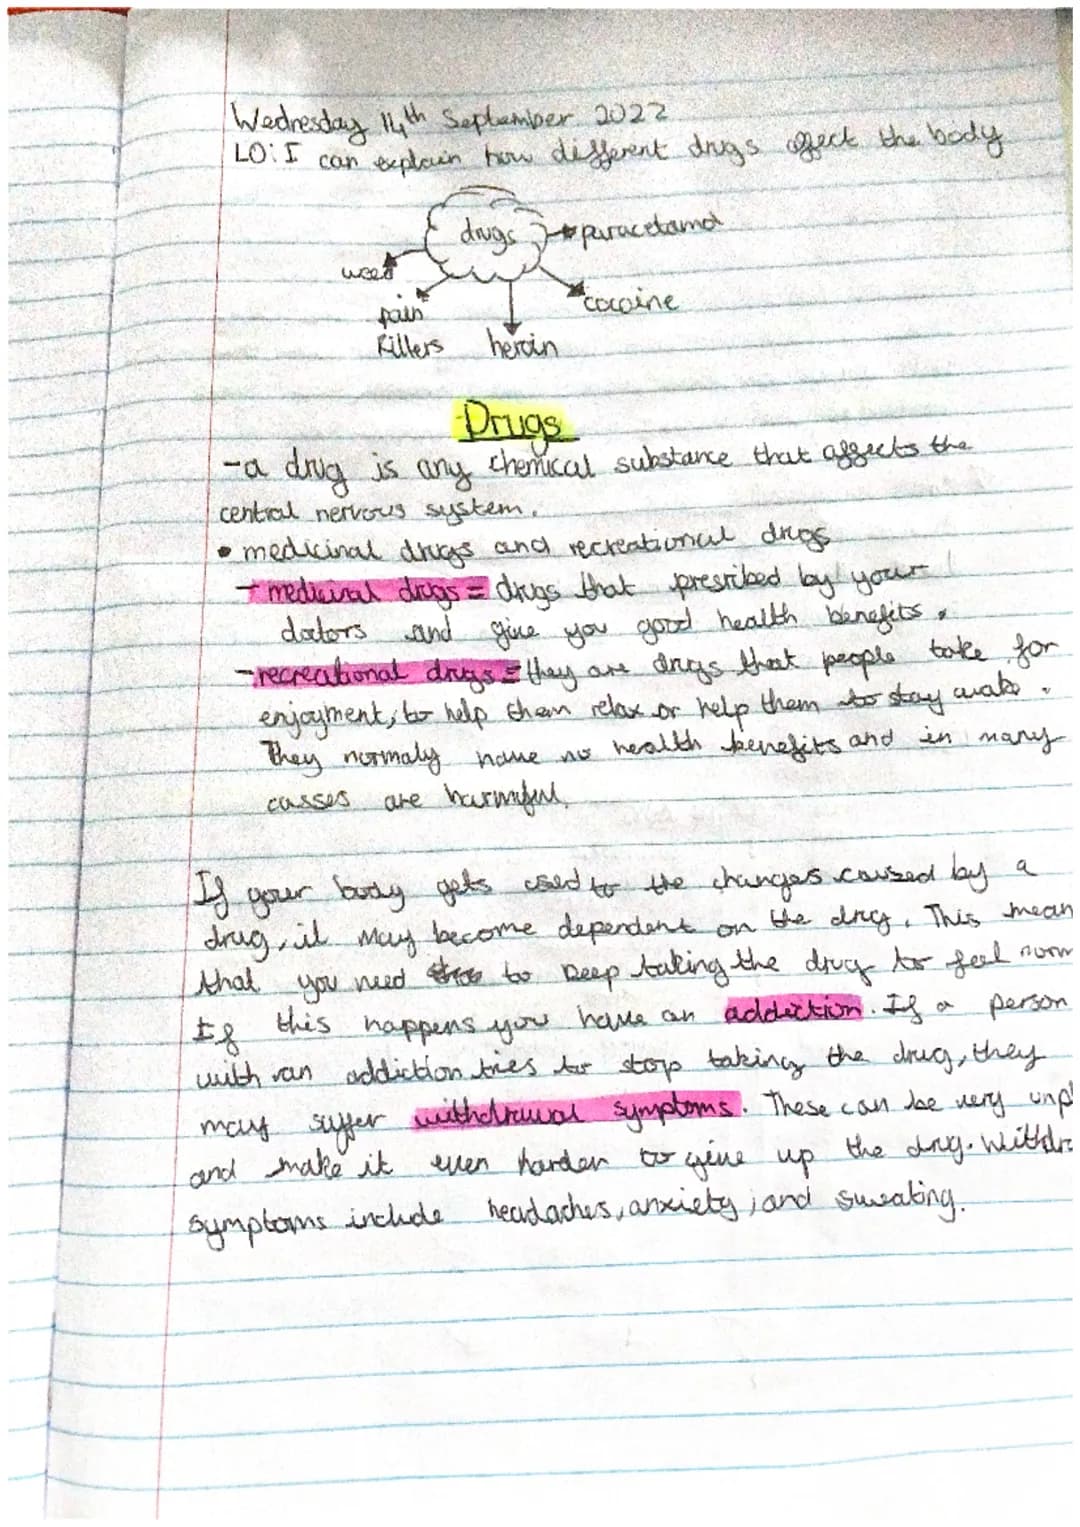 Wednesday 14th September 2022
LO: I can explain how different drugs affect the body
drugs
paracetamol
weed
cocaine
pain
killers
heroin
Drugs
-a drug is any chemical substance that affects the
central nervous system.
• medicinal drugs and recreational drugs
- medicinal drugs = drugs that prescribed by your
doctors and give you good health benefits.
- recreational drugs = they are drugs that people take for
enjoyment, to help them relax or help them to stay awake.
They normaly have no health benefits and in many
casses are harmful.
If your body gets used to the changes caused by a
drug, it may become dependent on the drug. This mean
that you need to keep taking the drug to feel norm
If this happens you have an addiction. If a person
with an addiction tries to stop taking the drug, they
may suffer withdrawal symptoms. These can be very unpl
and make it even harder to give up the drug. Withdra
symptoms include headaches, anxiety, and sweating.